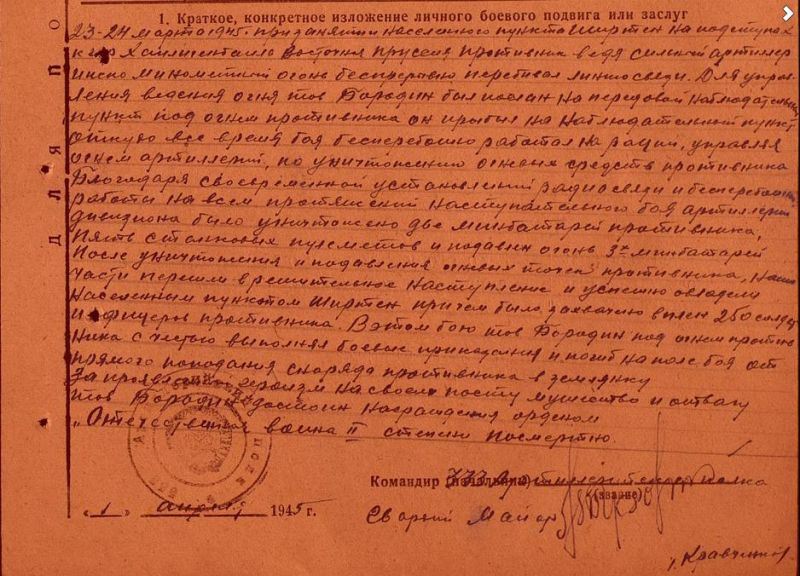 1. Краткое, конкретное изложение личного боевого подвига или заслуг
23-24 марта 1945г. при занятии населенного пункта Ширтен на подступах
к гор Восточная пруссия противник ведя сильной артилер
ииско минометный огонь беспрерывно перебивал линию связи. Для управ
ления ведения огня тов Бородин был послан на передовой наблюдательный
пункт под огнем противника он прибыл на наблюдательный пункт
откуда все время боя бесперебойно работал на рации, управляя
огнем артиллерии, по уничтожению огневых средств противника
Благодаря своевременной установлений радиосвязи и бесперебойной
работы на всем протяжений наступательного боя артилерией
дивизиона было уничтожено две минбатареи противника,
Пять станковых пулеметов и подавлен огонь 3х минбатарей
После уничтожения и подавления огневых точек противника, наши
части перешли в решительное наступление и успешно овладели
населенным пунктом Ширтен причем было захвачено в плен 250 солдат
и офицеров противника. В этом бою тов Бородин под огнем против
ника с честью выполнял боевые приказания и погиб на поле боя от
прямого попадания снаряда противника в землянку
За проявленный героизм на своем посту мужество и отвагу
тов Бородин достоин награждения орденом
„Отечественная война II степени посмертно.
Командир (начальник) полка
(звание)
„1“ апрель 1945 г.
Гвардий Майор
/Кравченко/
Д Л Я П О